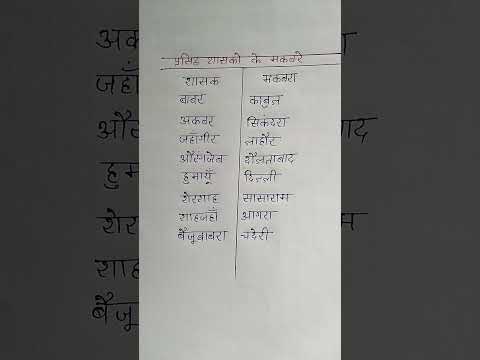 प्रसिद्ध शासको के मकबरे
शासक मकबरा
बाबर काबुल
अकबर सिकंदरा
जहाँगीर लाहौर
औरंगजेब दौलताबाद
हुमायूँ दिल्ली
शेरशाह सासाराम
शाहजहाँ आगरा
बैजूबाबरा चंदेरी